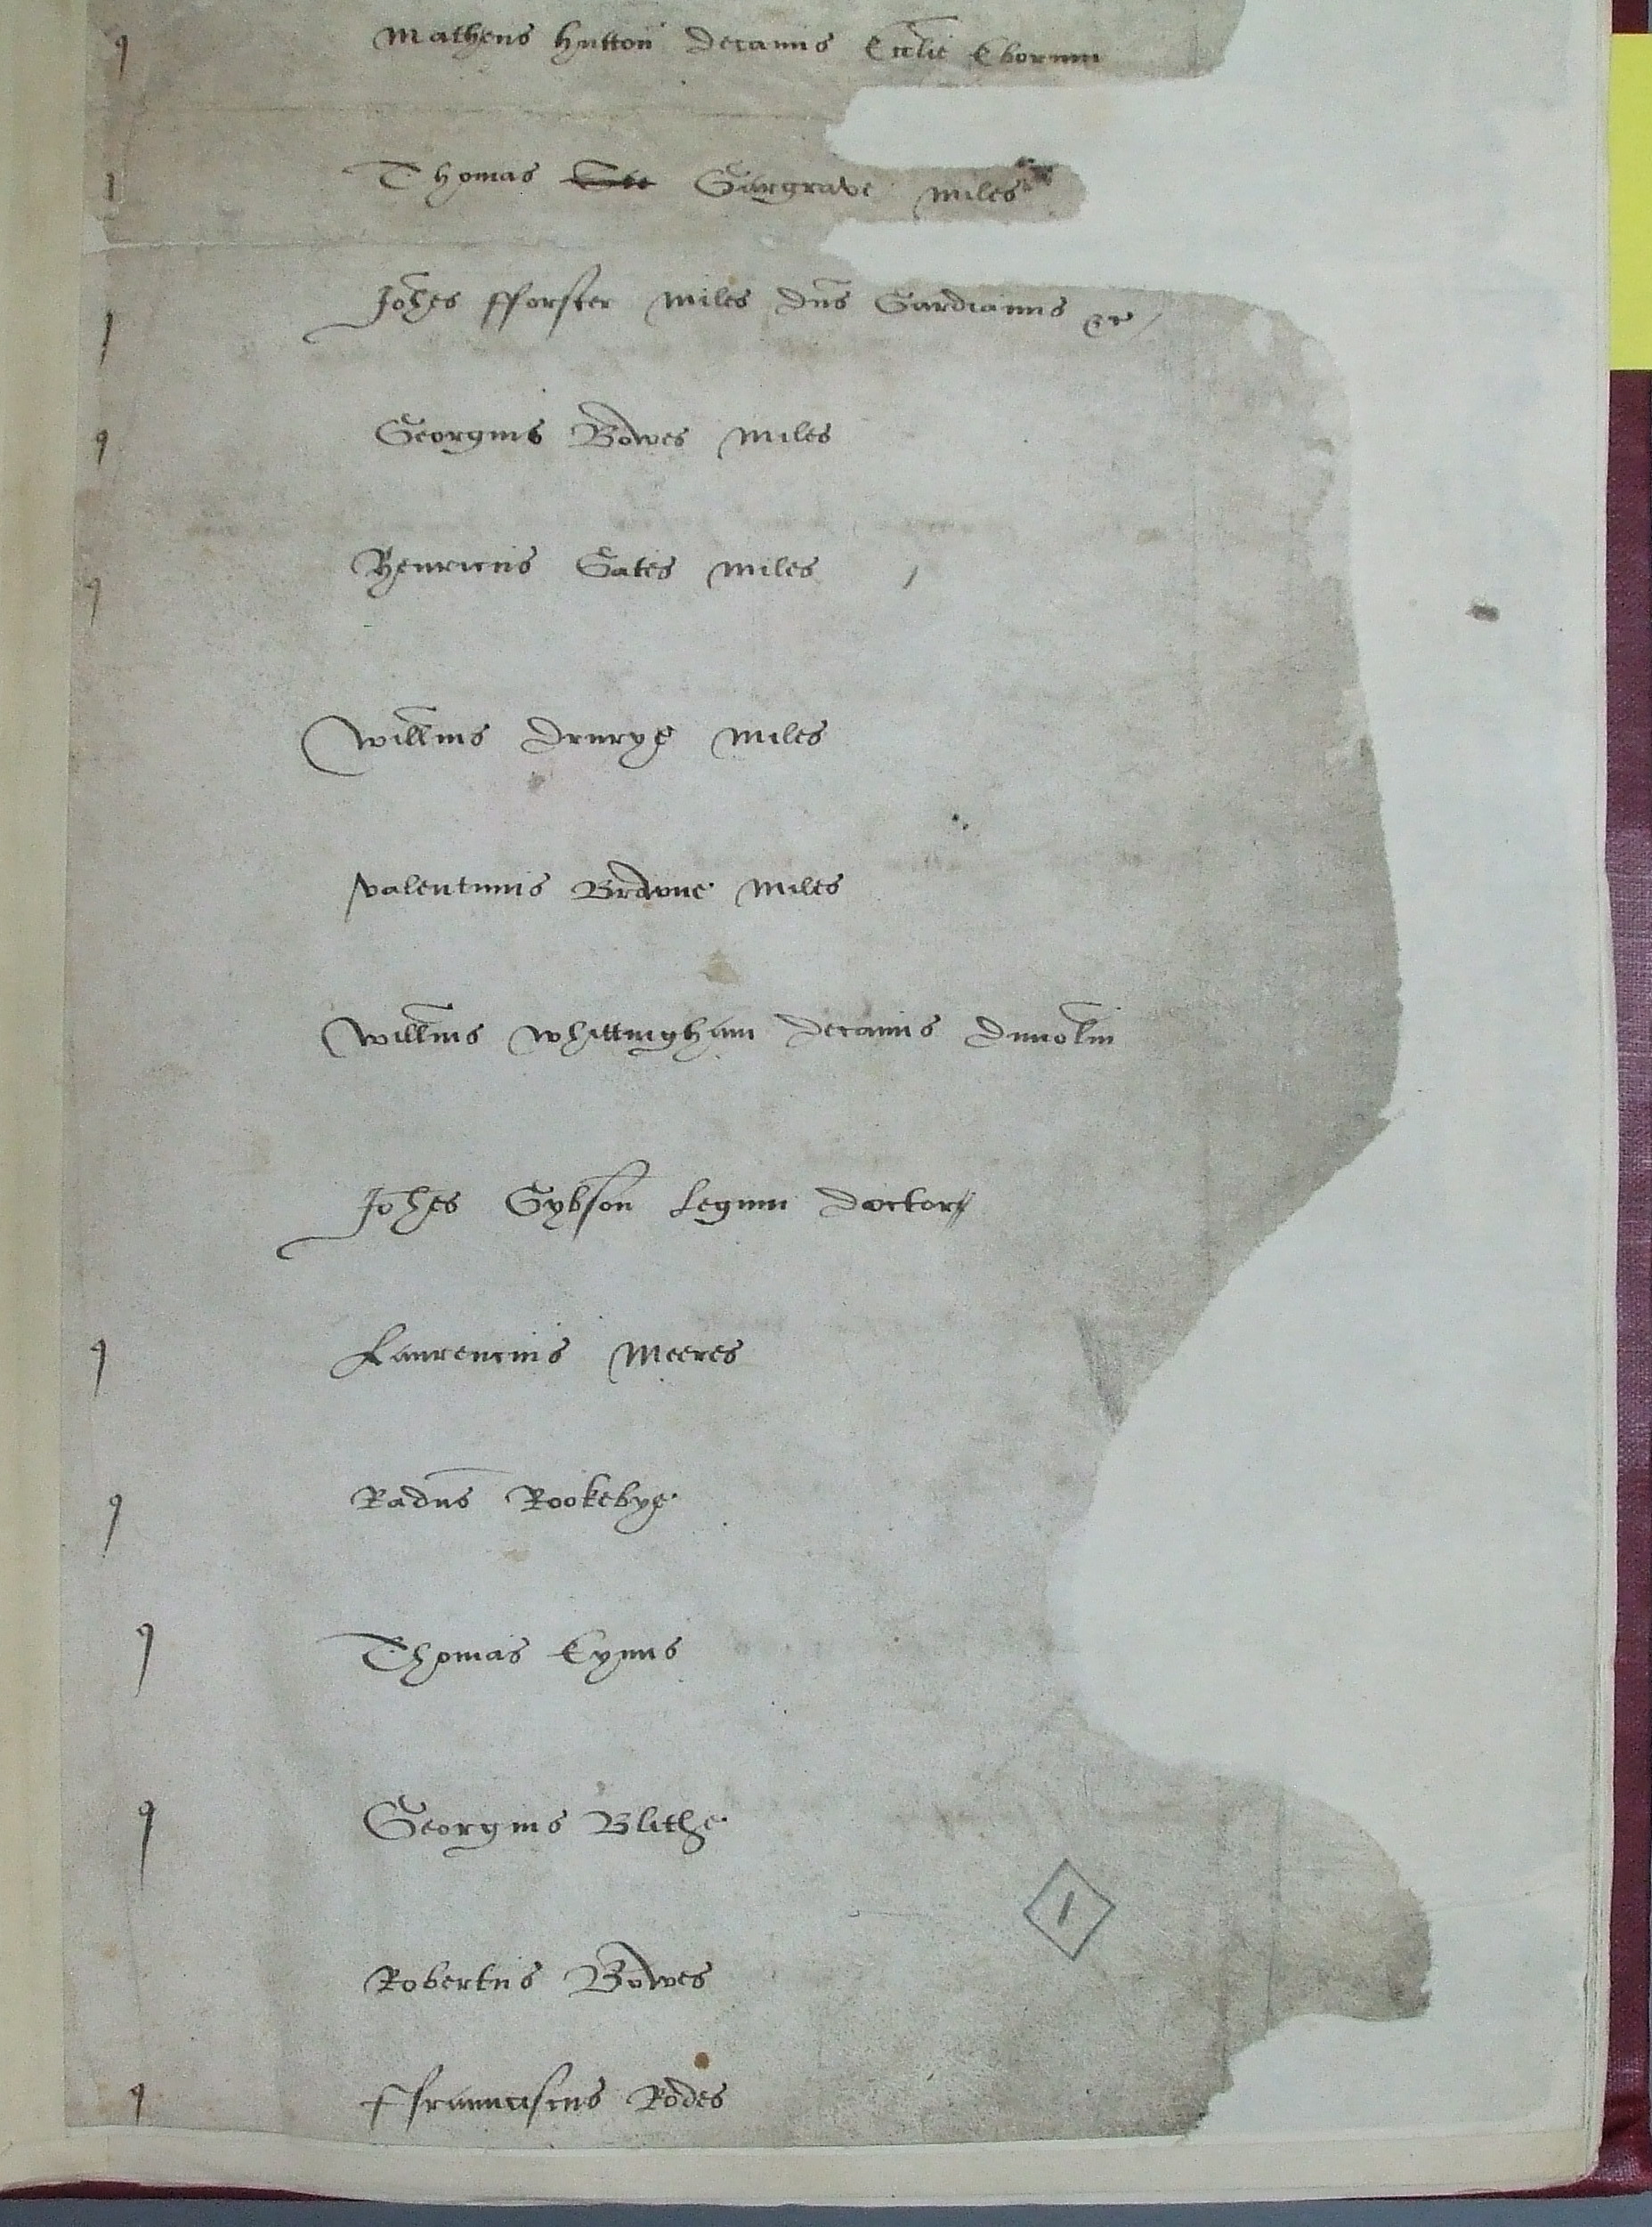 Matheus Hutton decanus Ecclie Eborum
Thomas Gargrave miles
Johes fforster miles dns Gardianus &c
Georgius Bowes miles
Henricus Gates miles
Willmus Drurye miles
Valentinus Browne miles
Willmus Whittingham decanus Dunolm
Johes Gybson legum doctor
Laurencius Meeres
Radus Rookebye
Thomas Eynns
Georgius Blithe
1
Robertus Bowes
ffraunciscus Rodes